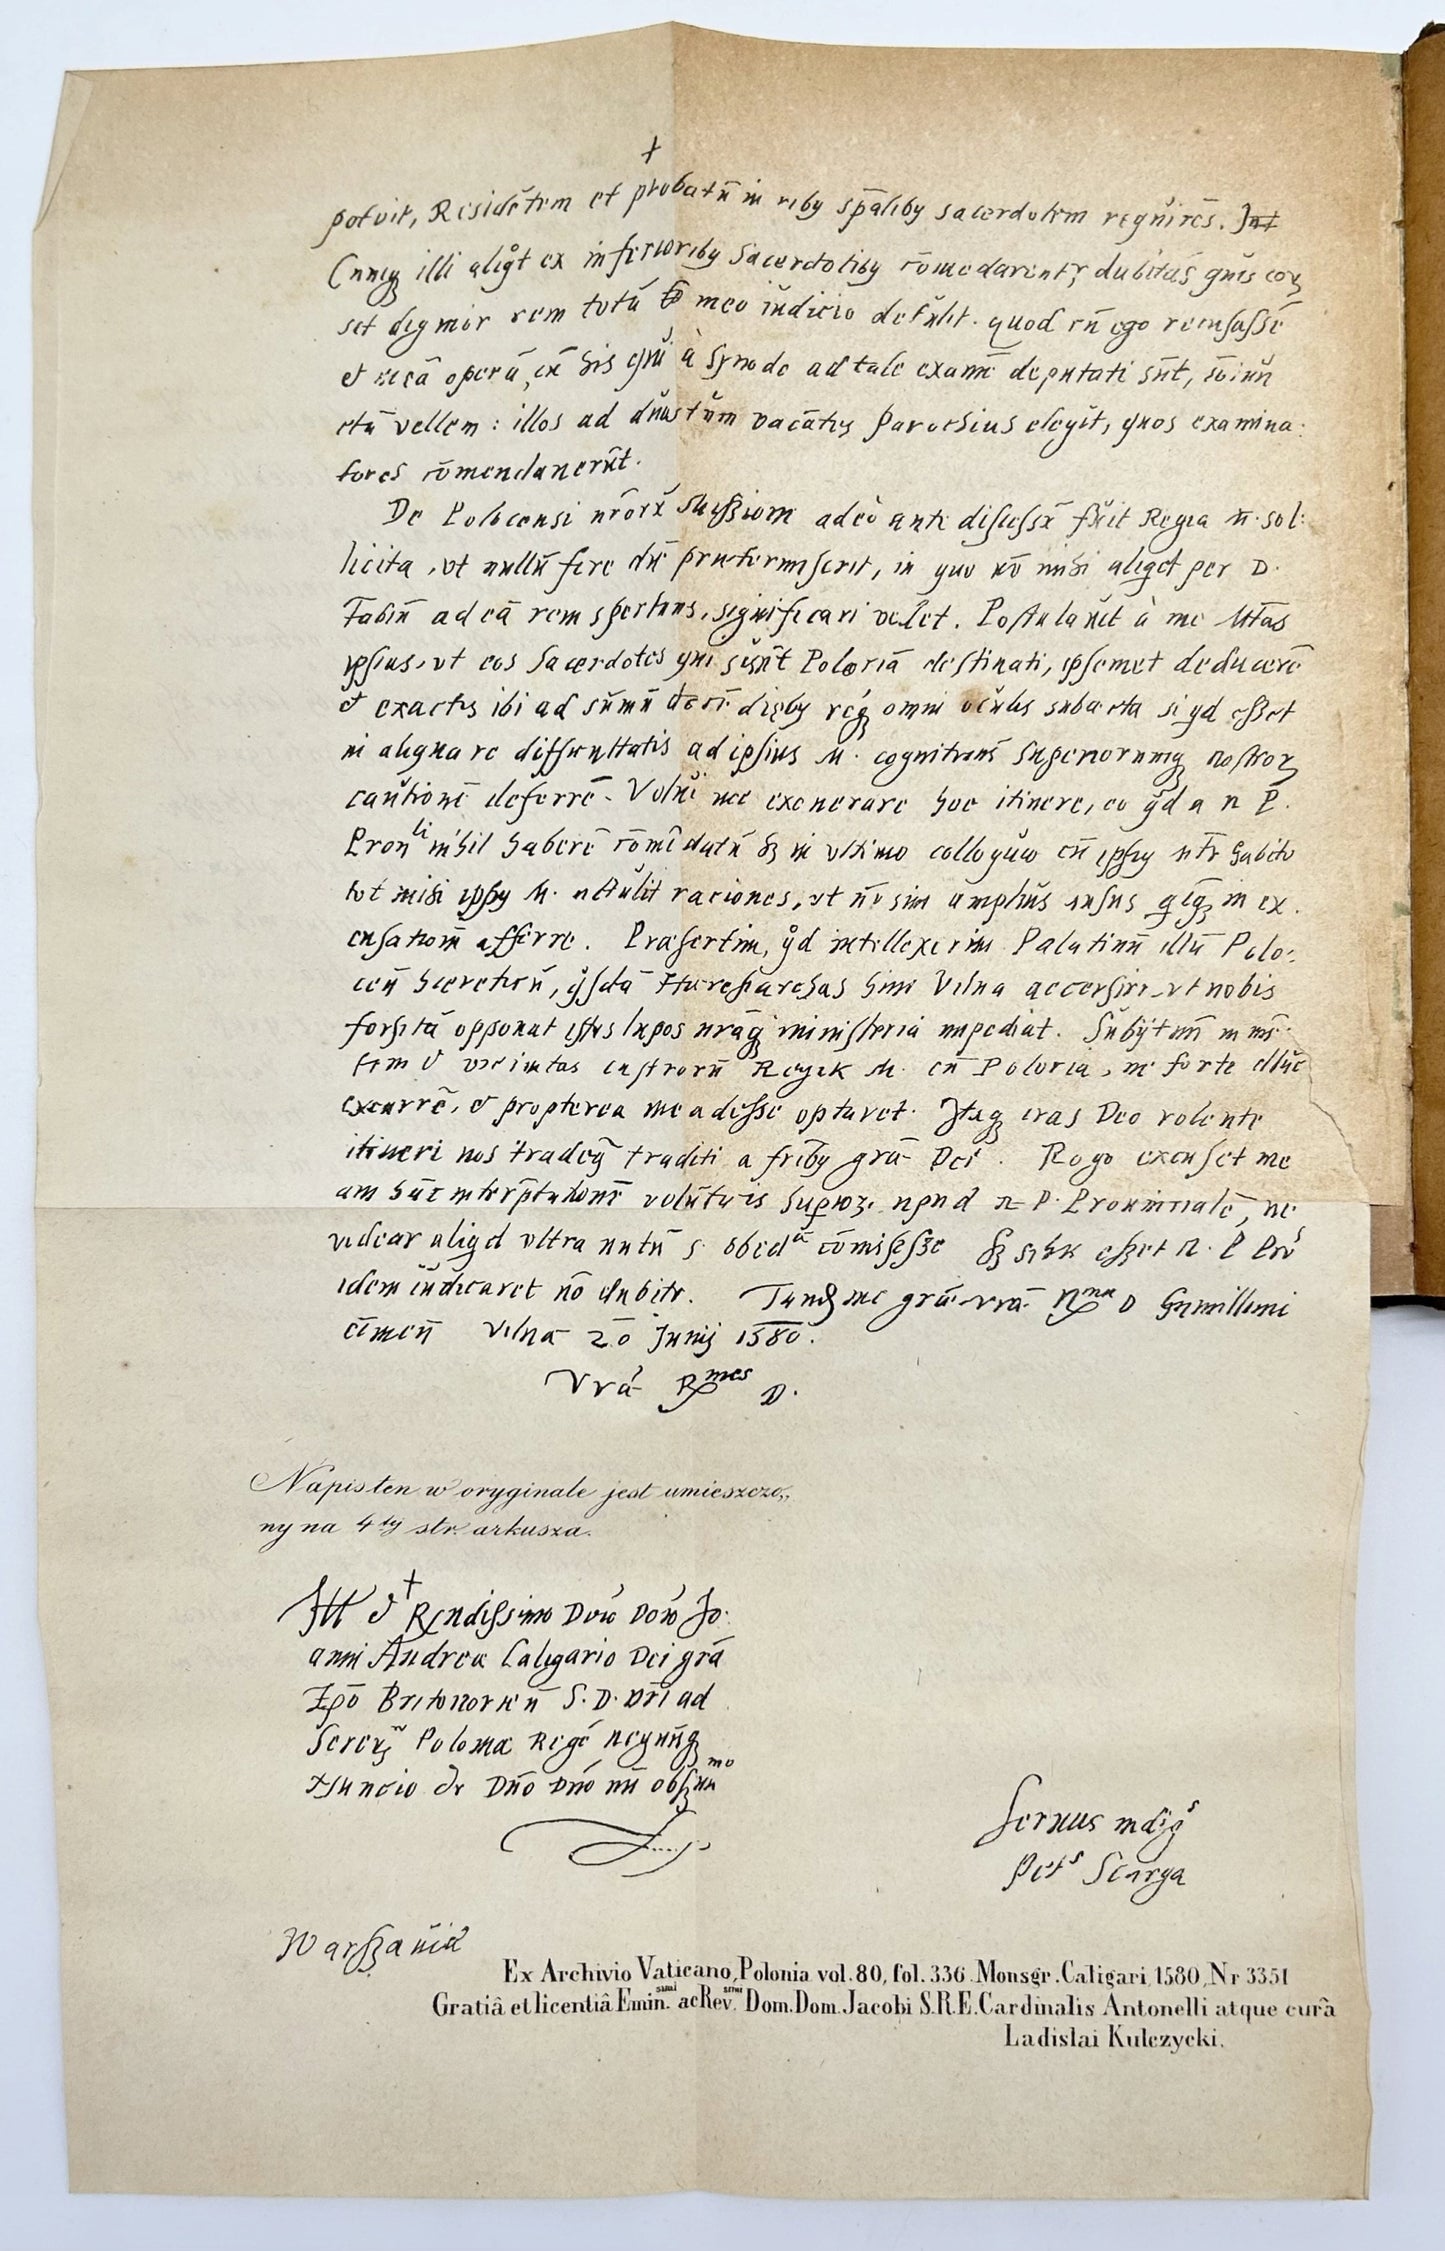 potuit, Residētem et probatū in riby spāliby sacerdotem reqũirēs.
Cumq illi aliqt ex inferioriby Sacerdotiby cōmēdarentr, dubitās quis eoꝝ
sit dignior rem totā meo iũdicio detulit. quod cū ego recusassē
et operā, ex his qui à Synodo ad tale examē deputati sūt,
ctā vellem: illos ad duas tūm vacātes Paroesias elegit, quos examina:
tores cōmendauerūt.
De Polocensi nrōrū adeò ante discessū fuit Regia M. sol:
licita, ut nullū fere diē prætermiserit, in quo nō mihi aliqet per D.
ad eā rem spectans, significari velet. Postulauit à me Lrās
ipsius, ut eos Sacerdotes qui sunt Polociā destinati, ipsemet deducerē
et exactis ibi ad sūmū dieby req omni oculis subiecta si qd esset
in aliqua re difficultatis ad ipsius M. cognitionē Superiorumq nostroꝝ
cautionē deferrē. Volui me exonerare hoc itinere, eo qd a R P.
Prouli nihil haberē cōmēdatū sꝫ in ultimo colloquio cū ipsiy habito
tot mihi ipsiy M. attulit raciones, ut nō sim amplius ausus qicq in ex.
cusationē afferre. Præsertim, qd intellexerim Palatinū illū Polo:
cen Hæreticū, qsdā Hæresiarchas hinc Vilna accersire, ut nobis
forsitā opponat istos lupos nrāq ministeria impediāt. Subijt
tem et vicinitas castrorū Regiæ M. cū Polocia, ne forte illuc
excurrē, et propterea me adesse optaret. Itaq cras Deo volente
itineri nos trademꝰ traditi a frīby grā Dei. Rogo excuset me
am hāc interptationē volūtatis Superioꝝ. apud R P. Prouincialē, ne
videar aliqd ultra nutū s. obedā cōmisisse sꝫ si hic esset R. P Proˢ
idem iudicaret nō dubito. Tandē me grā vrā Rma D humillime
cōmen Vilna 20 Junij 1580.
Vrā Rmes D.
Napis ten w oryginale jest umieszczo„
ny na 4tej str. arkusza.
Ill et Rendissimo Dnō Dnō Jo.
anni Andreæ Caligario Dei grā
Epō Britonorien S. D. nri ad
Seren Poloniæ Regē Regnūq
Nuncio et Dnō Dnō mī obser.mo
Seruus indigˢ
Petˢ Scarga
Warszaŭiā
Ex Archivio Vaticano, Polonia vol. 80, fol. 336. Monsgr. Caligari, 1580, Nr 3351
Gratiâ et licentiâ Emin.ssimi ac Rev.ssimi Dom. Dom. Jacobi S.R.E. Cardinalis Antonelli atque curâ
Ladislai Kulczycki.